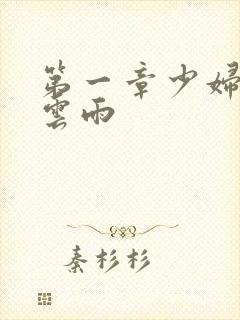 第一章少婦
雲雨
秦杉杉